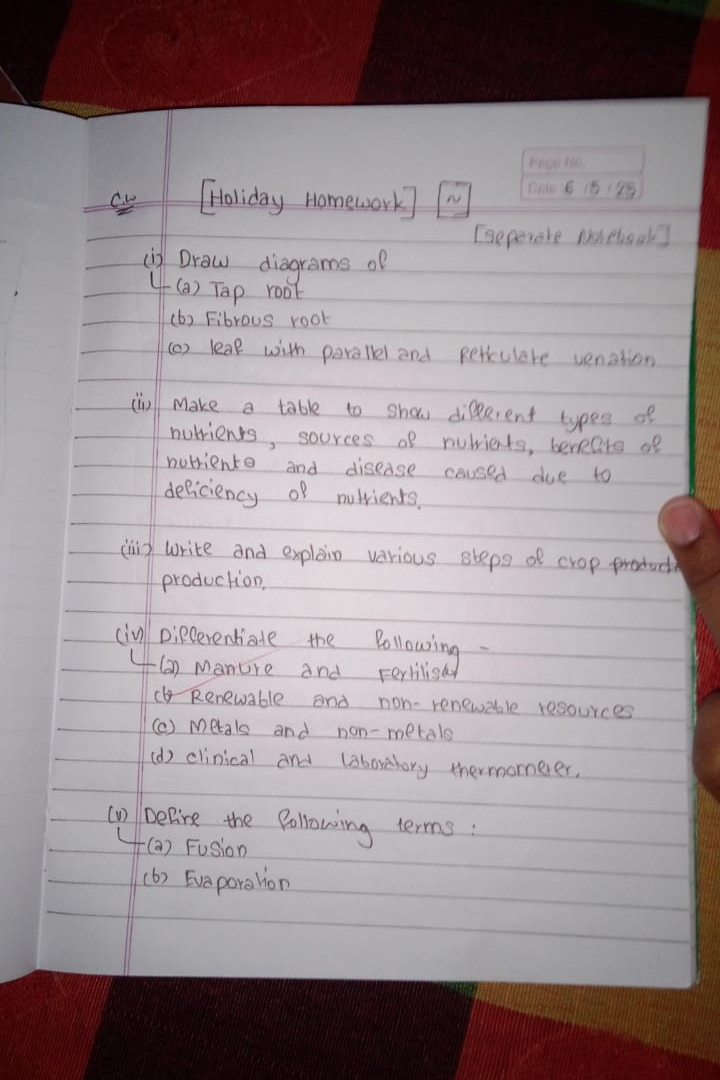 Page No.
Date 6 / 5 / 25
C.W [Holiday Homework] [~]
[seperate Notebook]
(i) Draw diagrams of
(a) Tap root
(b) Fibrous root
(c) leaf with parallel and Reticulate venation
(ii) Make a table to show different types of
nutrients, sources of nutrients, benefits of
nutrients and disease caused due to
deficiency of nutrients.
(iii) Write and explain various steps of crop
production.
(iv) Differentiate the following -
(a) Manure and Fertiliser
(b) Renewable and non-renewable resources
(c) Metals and non-metals
(d) clinical and laboratory thermometer.
(v) Define the following terms :
(a) Fusion
(b) Evaporation